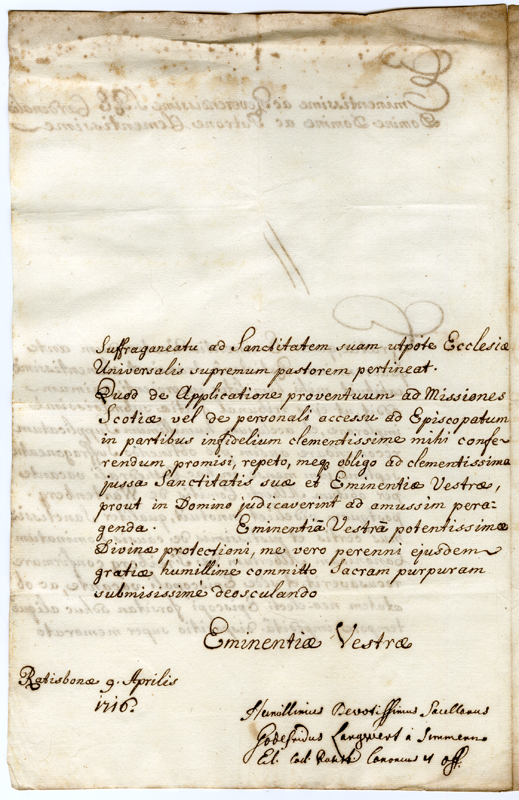 Suffraganeatu ad Sanctitatem suam utpote Ecclesiæ
Universalis supremum pastorem pertineat.
Quod de Applicatione proventuum ad Missiones
Scotiæ vel de personali accessu ad Episcopatum
in partibus infidelium clementissime mihi confe-
rendum promisi, repeto, meq₃ obligo ad clementissima
jussa Sanctitatis suæ et Eminentiæ Vestræ,
prout in Domino judicaverint ad amussim pera-
genda. Eminentiā Vestrā potentissimæ
Divinæ protectioni, me vero perenni ejusdem
gratiæ humillime committo Sacram purpuram
submisissime deosculando
Eminentiæ Vestræ
Ratisbonæ 9. Aprilis
1716.
Humillimus Devotissimus Sacellanus
Godefridus Langwert à Simmern
Canonicus